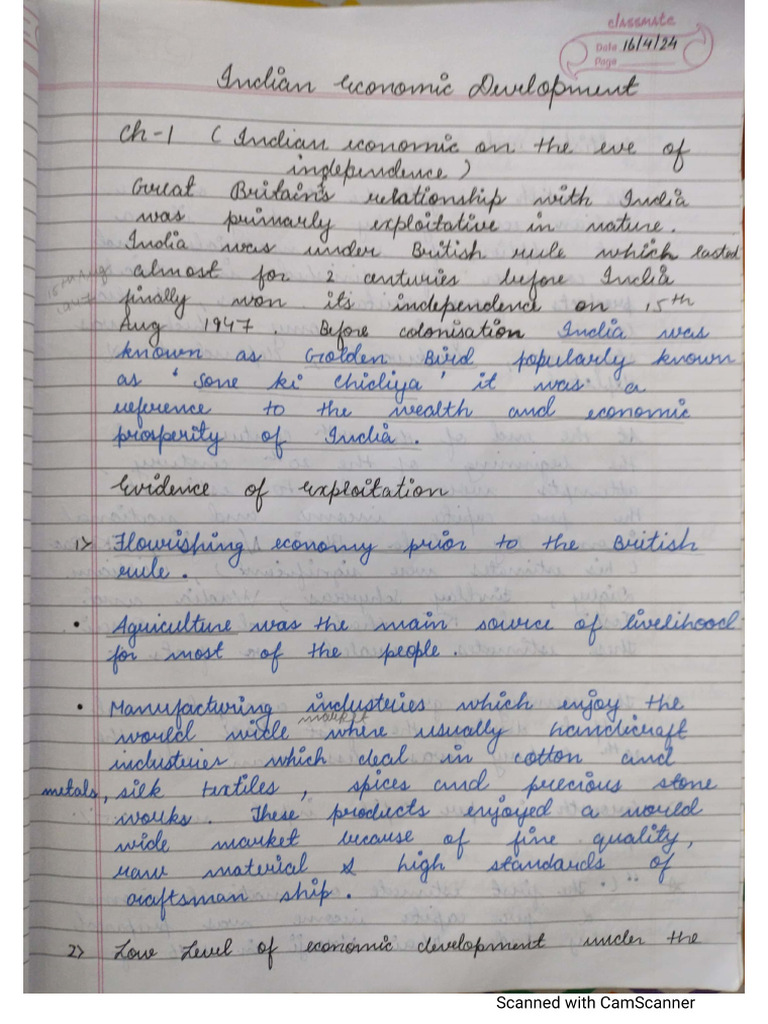 classmate
Date 16/4/24
Page
Indian Economic Development
Ch-1 (Indian economic on the eve of
independence)
Great Britain's relationship with India
was primarly exploitative in nature.
India was under British rule which lasted
almost for 2 centuries before India
15th Aug
1947
finally won its independence on 15th
Aug 1947. Before colonisation India was
known as Golden Bird popularly known
as 'Sone ki Chidiya' it was a
reference to the wealth and economic
prosperity of India.
Evidence of exploitation
1> Flourishing economy prior to the British
rule.
• Agriculture was the main source of livelihood
for most of the people.
• Manufacturing industeries which enjoy the
market
world wide where usually handicraft
industeries which deal in cotton and
metals, silk textiles, spices and precious stone
works. These products enjoyed a world
wide market because of fine quality,
raw material & high standards of
craftsman ship.
2> Low Level of economic development under the
Scanned with CamScanner